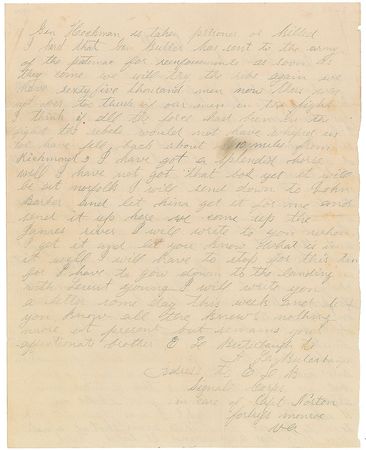 Gen Heckman is taken prisoner or killed
I herd that Gen Butler has sent to the army
of the potomac for reinforcements as soon as
they come we will try the rebs again we
have sixty five thousand men now thare was
not over ten thousand of our men in the fight
I think if all the force had been in the
fight the rebels would not have whiped us
we have fell back about 10 miles from
Richmond I have got a splendid horse
well I have not got that box yet it will
be at norfolk I will send down to John
Barker and let him get it for me and
send it up here we come up the
James river I will write to you when
I get it and let you know what is in
it well I will have to stop for this time
for I have to go down to the landing
with Leeut I will write you
a letter some day this week and let
you know all the knews nothing
more at present but remains your
affectionate brother E L
to
Adress to E L B
Signal Corps
in care of Capt Norton
fortress monroe
Va